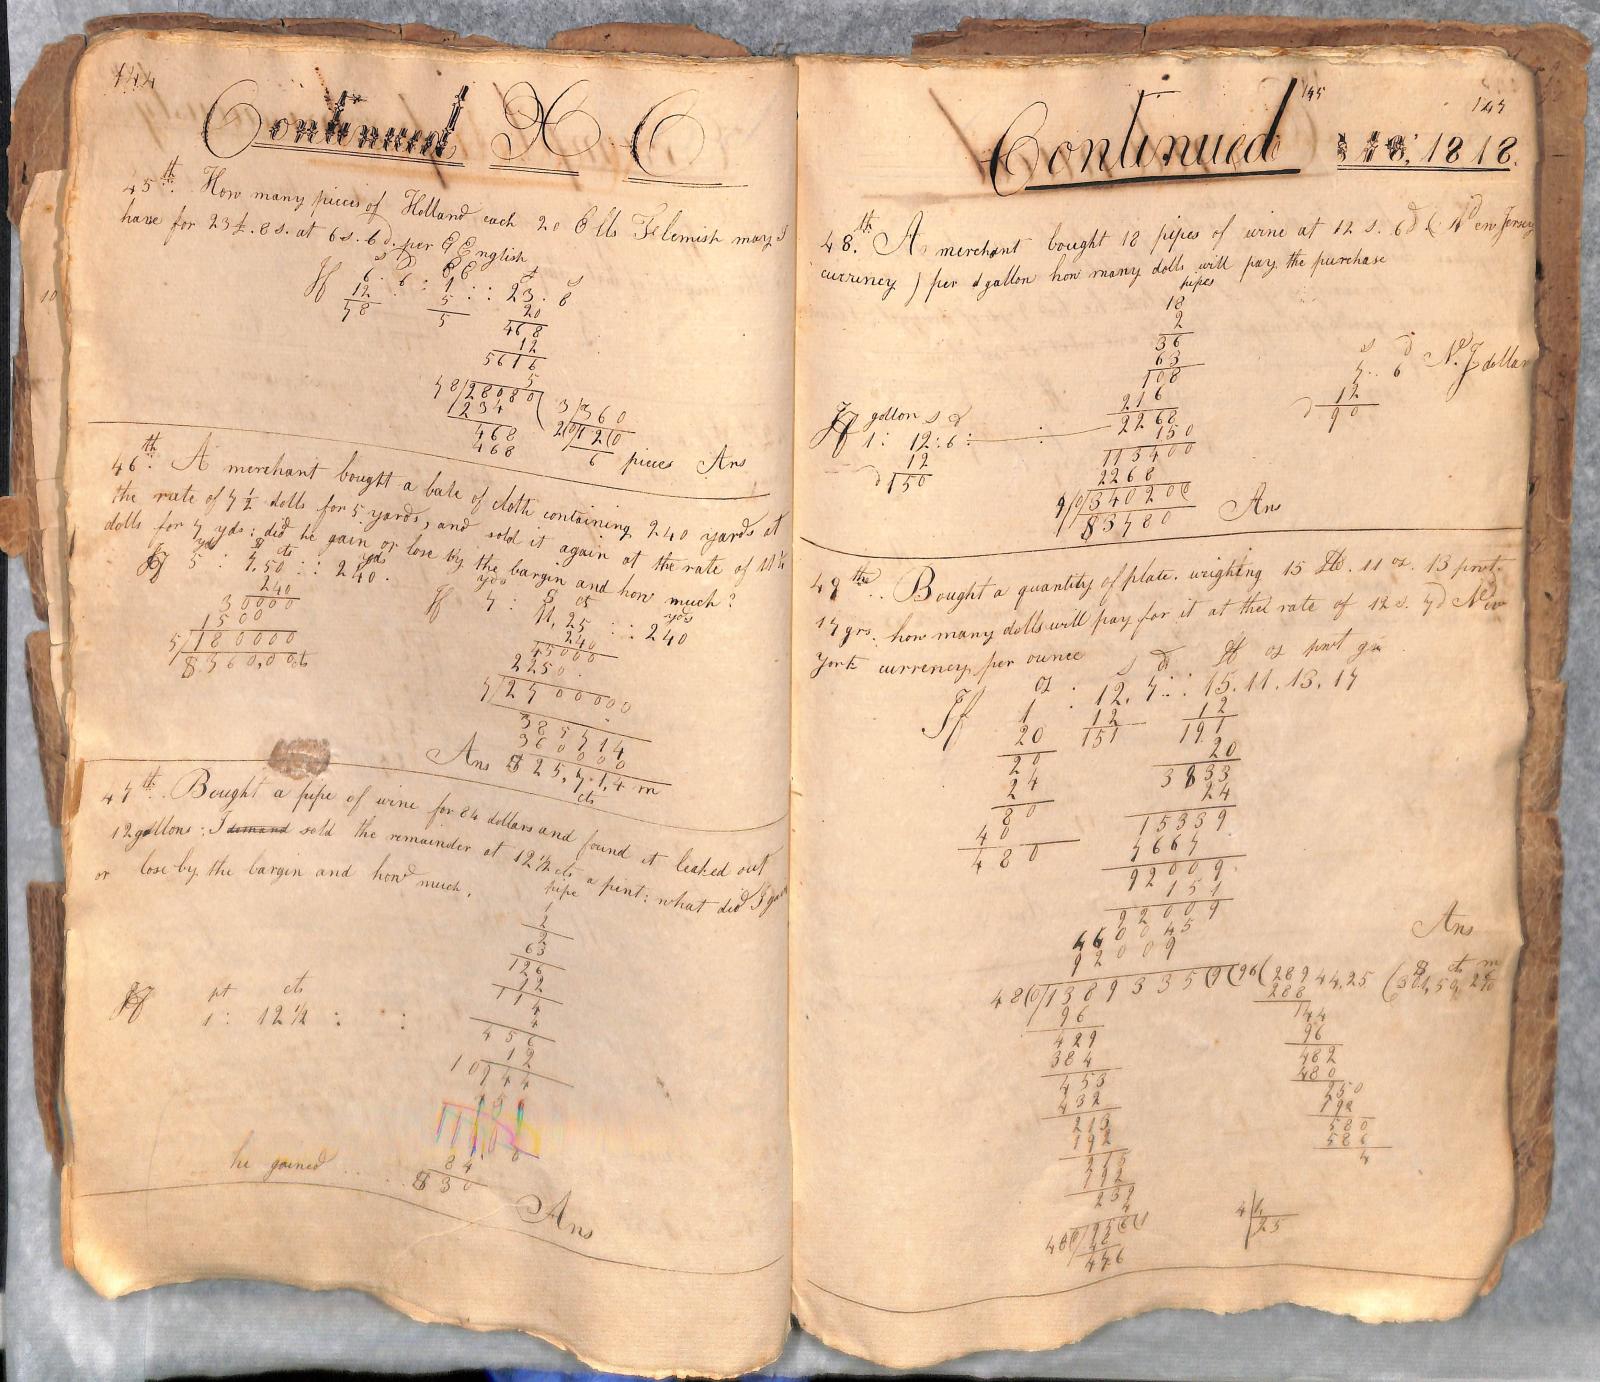 144
Continued H C
45th. How many pieces of Holland each 20 Ells Flemish may I
have for 23£. 8s. at 6s. 6d. per E English
s D EE £ s
If 6. 6 : 1 : : 23. 8
12 5 20
78 5 468
12
5616
5
78/28080( 3/360
1234 2(0/12(0
468 6 pieces Ans
468
46th. A merchant bought a bale of cloth containing 240 yards at
the rate of 7½ dolls for 5 yards, and sold it again at the rate of 11¼
dolls for 7 yds: did he gain or lose by the bargin and how much?
yds $ cts yds
If 5 : 7,50 : : 240.
240
30000
1500
5/180000
$360,00cts
yds $ cts yds
If 7 : 11,25 : : 240
240
45000
2250.
7/2700000
385714
360000
Ans $25,7.1,4 m
cts
47th. Bought a pipe of wine for 84 dollars and found it leaked out
12 gallons: I demand sold the remainder at 12½ cts a pint: what did I gain
or lose by the bargin and how much.
pipe
1
2
2
63
126
12
114
4
456
pt cts
If 1 : 12½ : :
84
he gained .. $30
Ans
145
147
Continued 18, 1818.
48th. A merchant bought 18 pipes of wine at 12 s. 6d (New Jersey
currency) per gallon how many dolls will pay the purchase
pipes
18
2
36
63
108
216
2268
150
113400
2268
9/0/340200
$3780 Ans
s d
7.. 6 N. J dollar
12
d 90
gallon s d
If 1 : 12:6 : :
12
d 150
49th.. Bought a quantity of plate. weighing 15 lb. 11 oz. 13 pwt.
17 grs. how many dolls will pay for it at the rate of 12 s. 7d New
York currency per ounce
oz s d lb oz pwt gr
If 1 : 12,7 : : 15.11.13.17
20 12 12
20 151 191
24 20
80 3833
40 24
480 15339
7667
92009
151
92009
460045
92009
Ans
$ cts m
48(0/1389335(9(96(28944,25 (301,50,2
96 288
429 144
384 96
453 482
432 480
213 250
192 192
215 580
192 4
239
4
480/956(1
48
476
4/1,
25